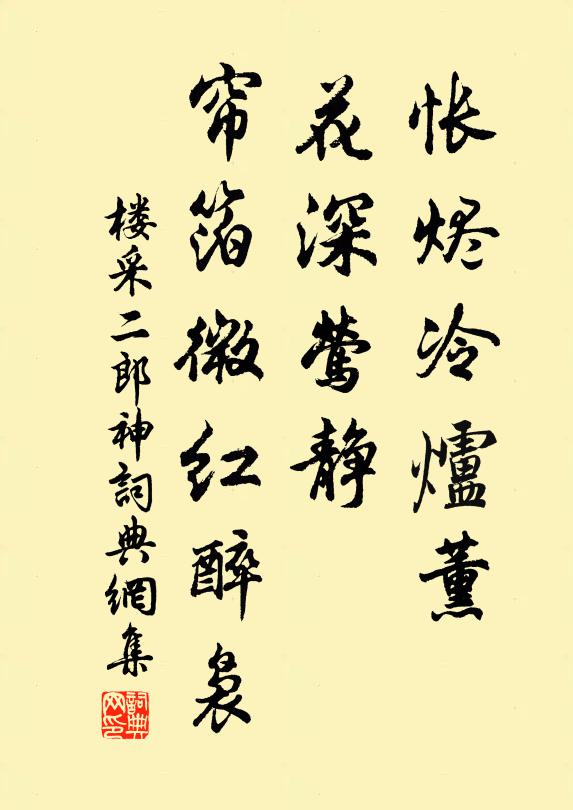 怅烬冷爐薰
花深莺静
帘箔微红醉袅
楼采二郎神詞典網集
詞典网印